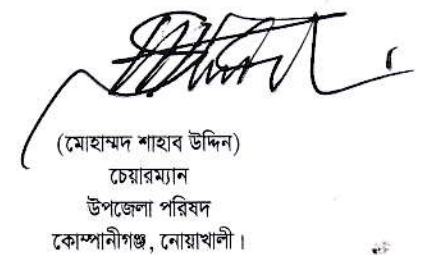 (মোহাম্মদ শাহাব উদ্দিন)
চেয়ারম্যান
উপজেলা পরিষদ
কোম্পানীগঞ্জ, নোয়াখালী।